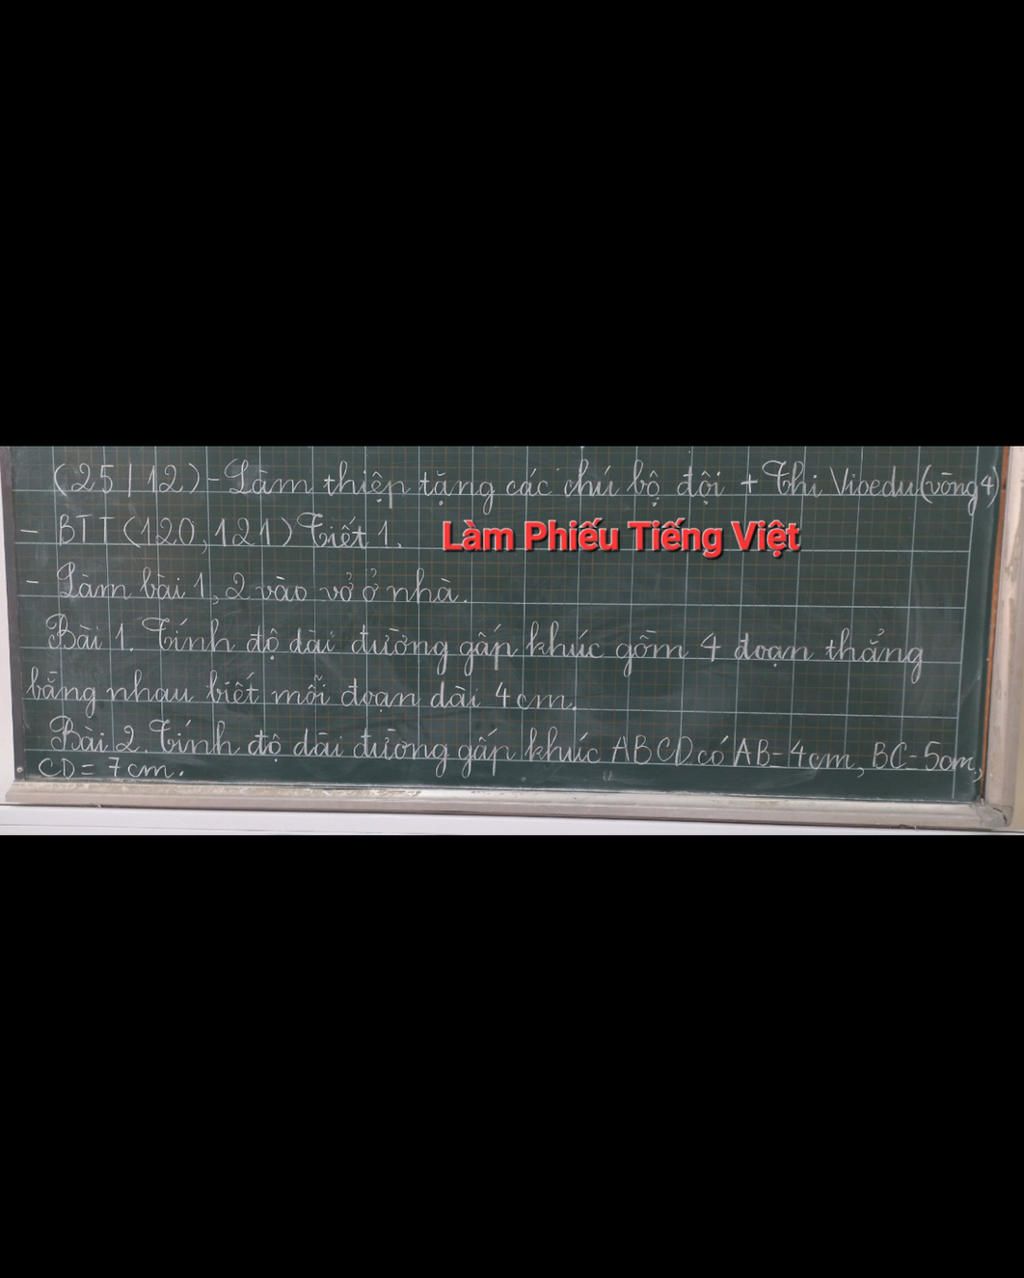 (25/12) - Làm thiệp tặng các chú bộ đội + Thi Vioedu (vòng 4)
- BTT (120, 121) Tiết 1. Làm Phiếu Tiếng Việt
- Làm bài 1, 2 vào vở ở nhà.
Bài 1. Tính độ dài đường gấp khúc gồm 4 đoạn thẳng
bằng nhau biết mỗi đoạn dài 4cm.
Bài 2. Tính độ dài đường gấp khúc ABCD có AB = 4cm, BC = 5cm,
CD = 7cm.